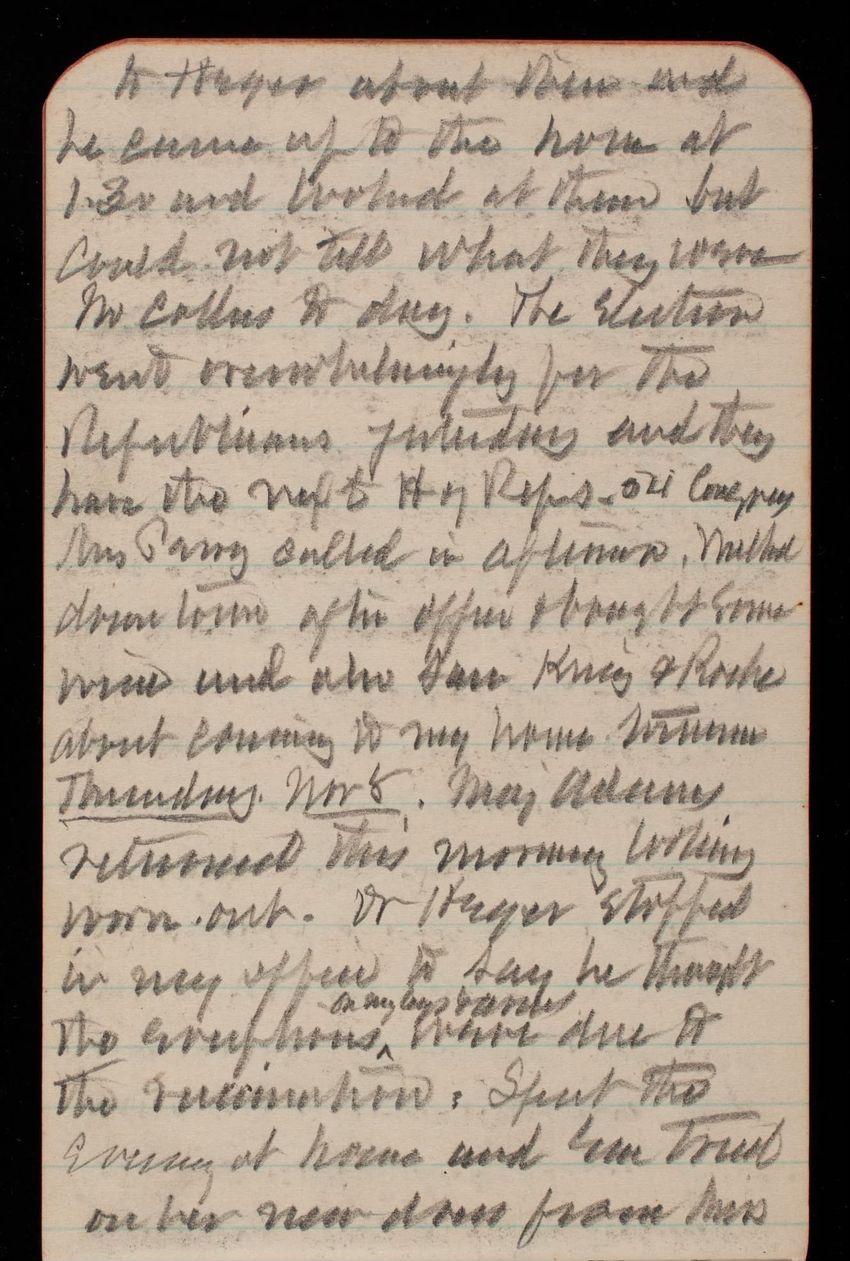 Dr Heger about them and
he came up to the house at
1.30 and looked at them but
could not tell what they were
No callers to day. The Election
went overwhelmingly for the
Republicans yesterday and they
have the next H of Reps. Congress
Mrs Parry called in afternoon, Walked
down town after office & bought some
wine and also saw & Roche
about coming to my house
Thursday. Nov 8. Maj Adams
returned this morning looking
worn out. Dr Heger stopped
in my office to say he thought
on my boys
the eruptions ^ were due to
the vaccination. Spent the
Evening at home and tried
on her new dress from Miss